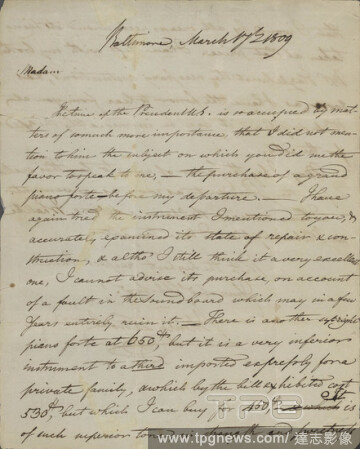 Baltimore, March 17th 1809
Madam
The time of the President U.S. is so occupied by mat-
ters of so much more importance that I did not men-
tion to him the subject on which you did me the
favor to speak to me, — the purchase of a grand
piano forte — before my departure. — I have
again tried the instrument I mentioned to you, &
accurately examined its state of repair & con-
struction, & altho' I still think it a very excellent
one, I cannot advise its purchase on account
of a fault in the sound board which may in a few
years entirely ruin it. — There is another upright
piano forte at 650 but it is a very inferior
instrument to a third imported expressly for a
private family, & which by the bill exhibited cost
530 but which I can buy for 450 is
of such superior tone
TPG
www.tpgnews.com / 達志影像